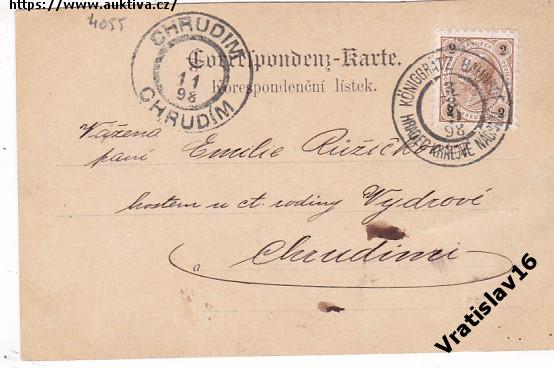 https://www.auktiva.cz/
4055
CHRUDIM
11
98
CHRUDÍM
Correspondenz-Karte.
Korespondenční lístek.
2 2
2 2
KÖNIGGRÄTZ BAHNHOF
98
HRADEC KRÁLOVÉ NÁDRAŽÍ
Vážená
paní Emilie Růžičk
hostem u ct. rodiny Vydrové
a Chrudimi
Vratislav16